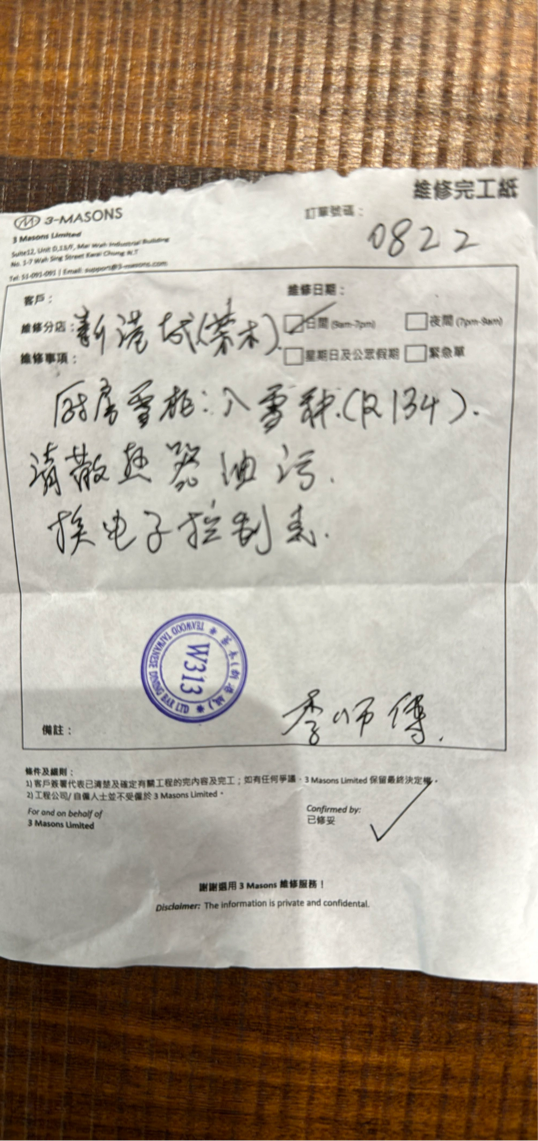 維修完工紙
3-MASONS
訂單號碼：
0822
3 Masons Limited
Suite12, Unit D,13/F, Mar Wah Industrial Building
No. 5-7 Wah Sing Street Kwai Chung N.T
Tel: 51-091-091 | Email: support@3-masons.com
客戶：
維修日期：
維修分店：新港城(茶木)
日間 (9am-7pm)
夜間 (7pm-9am)
維修事項：
星期日及公眾假期
緊急單
厨房雪柜：入雪种.(R134).
清散热器油污.
换电子控制表.
TEAWOOD TAIWANESE DINING BAR LTD
W313
備註：
李师傅.
條件及細則：
1) 客戶簽署代表已清楚及確定有關工程的完內容及完工；如有任何爭議，3 Masons Limited 保留最終決定權。
2) 工程公司/ 自僱人士並不受僱於 3 Masons Limited。
For and on behalf of
3 Masons Limited
Confirmed by:
已修妥
謝謝選用 3 Masons 維修服務！
Disclaimer: The information is private and confidental.